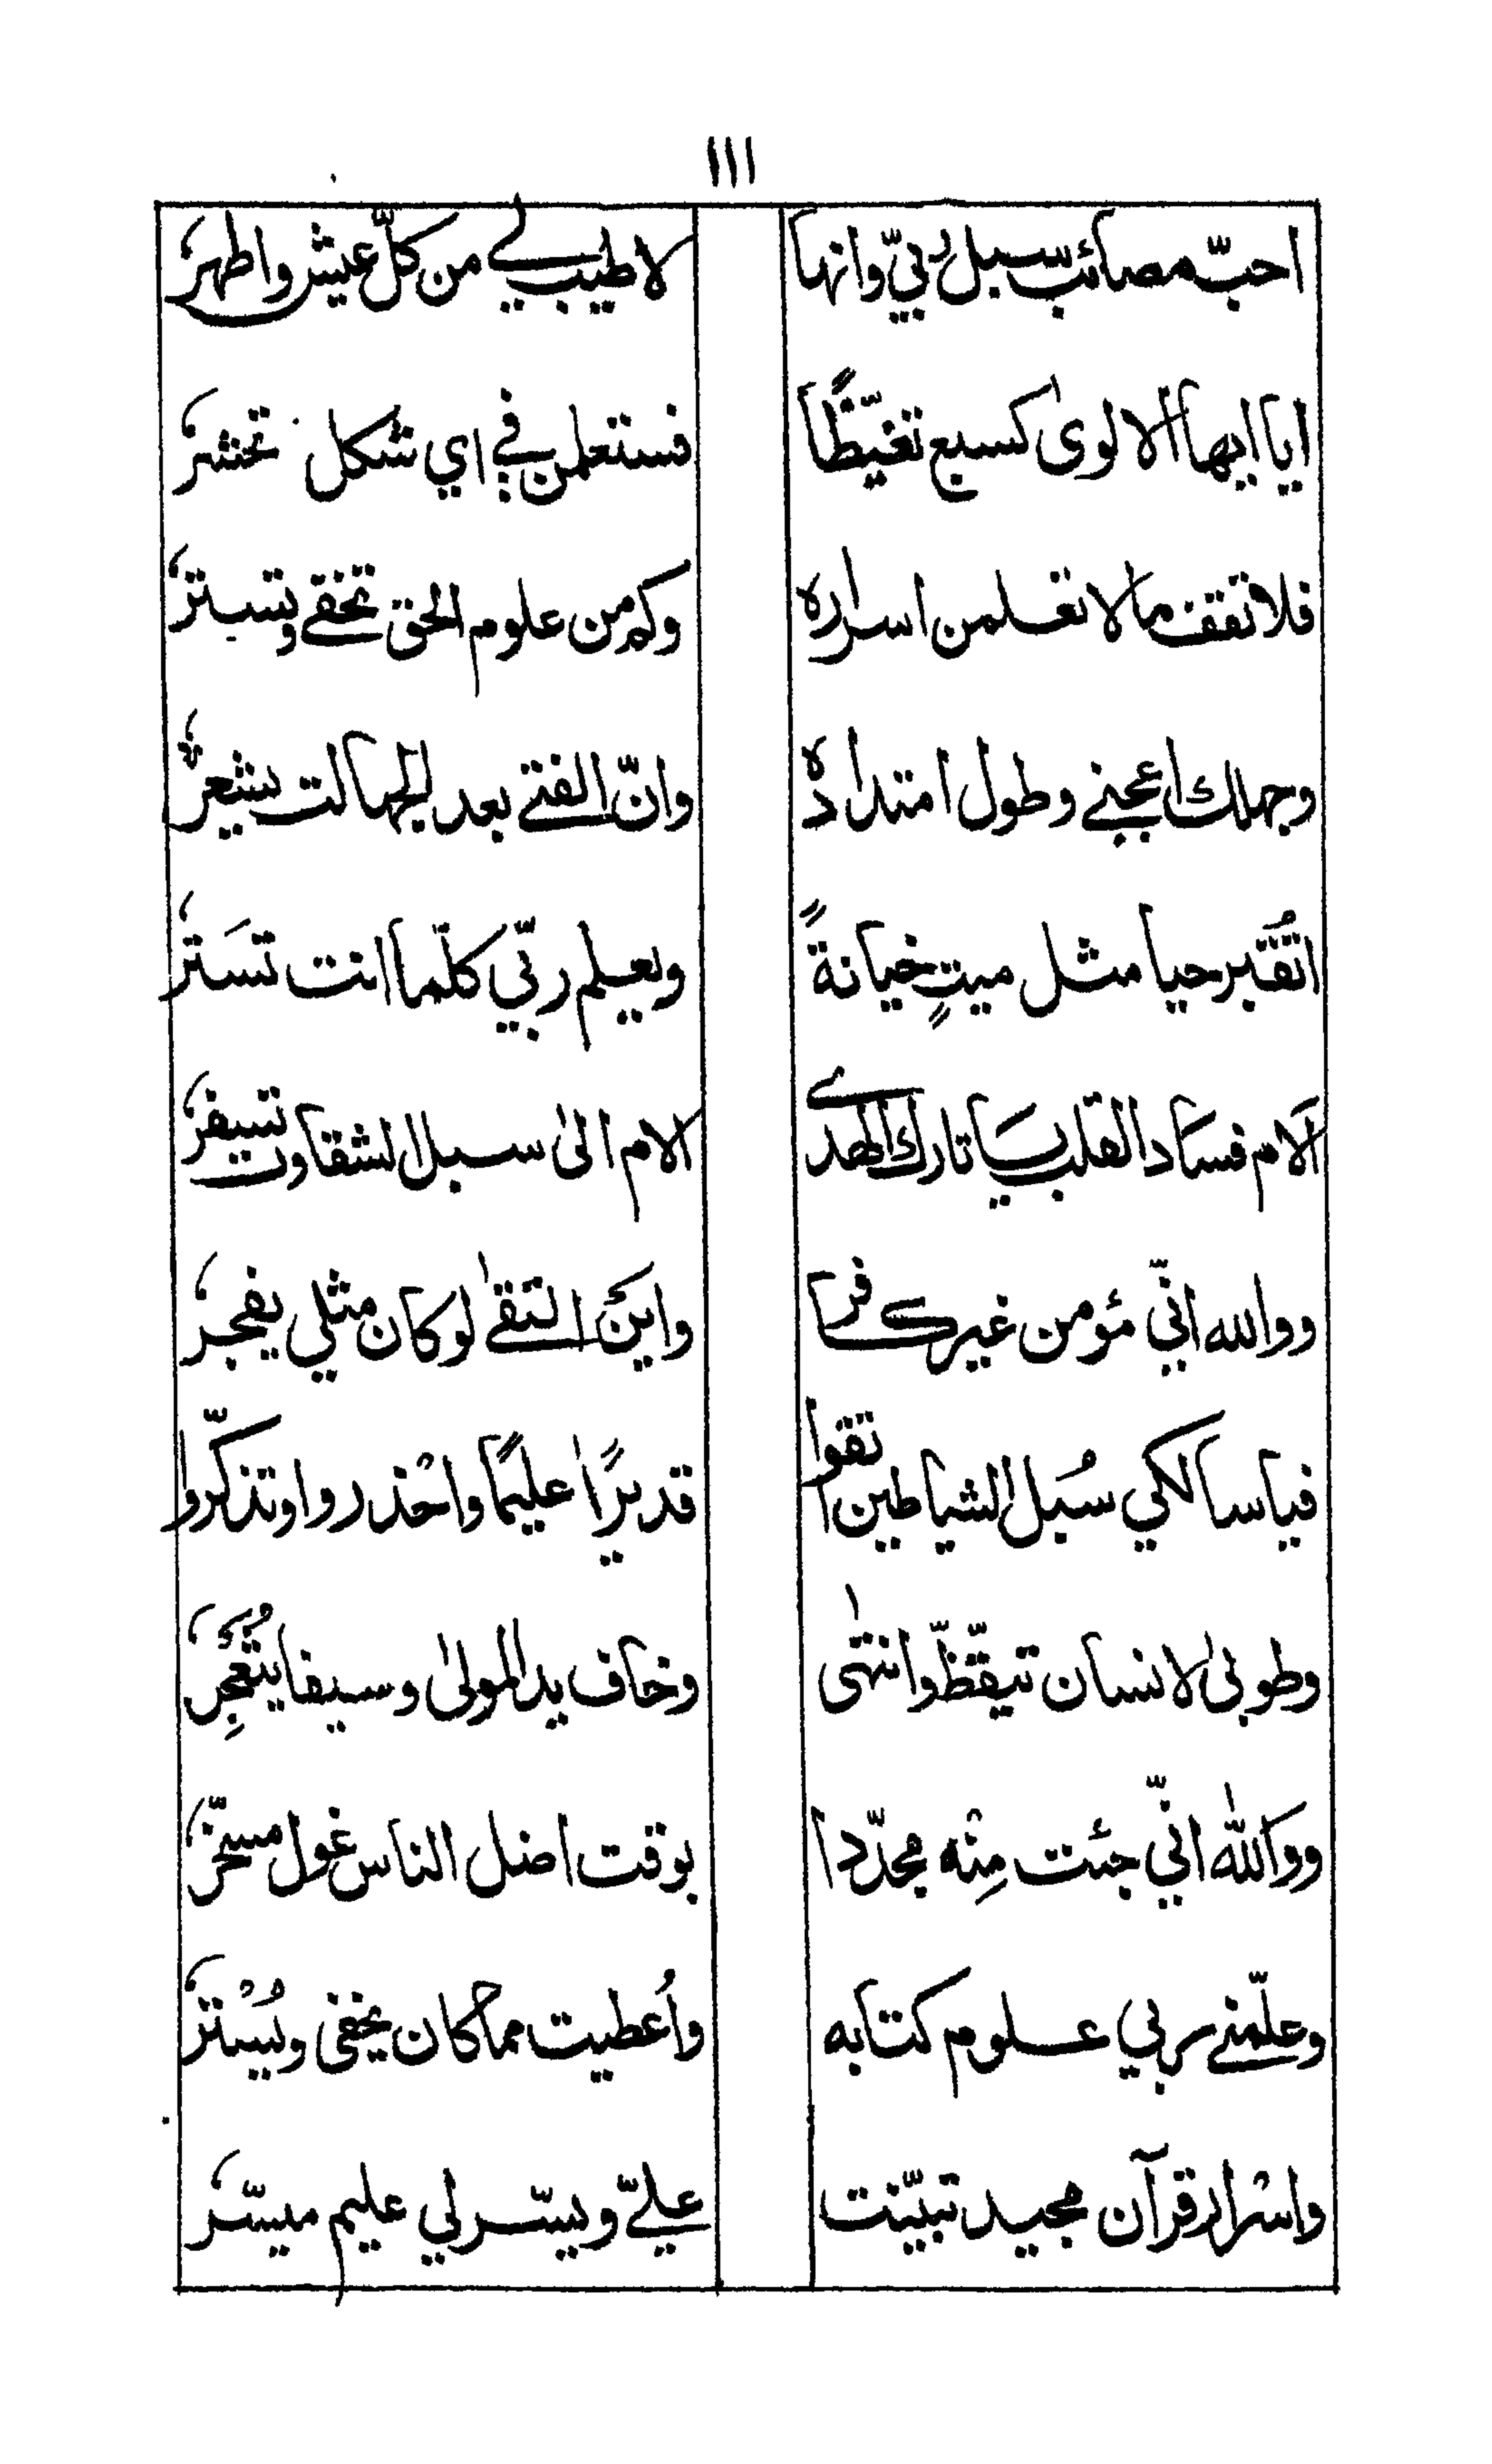 ١١١
احبّ مصائب سبل ربّي وانها لاطيب لي من كلّ عيش واطهرُ
ايا ايها الالوى كسبع تغيّظًا فستعلمن في اي شكل تحشرُ
فلا تقف ما لا تعلمن اسراره وكم من علوم الحق تخفى وتسترُ
وجهلك اعجبني وطول امتداده وانّ الفتى بعد الجهالت يشعرُ
اتُقبر حيا مثل ميتٍ خيانةً ويعلم ربّي كلّما انت تسَتر
الام فساد القلب يا تارك الهدى الام الى سبل الشقاوت تسفرُ
ووالله انّي مؤمن غير كافر واين التقى لو كان مثلي يفجرُ
فيا سالكي سُبل الشياطين اتقوا قديرًا عليمًا واحْذروا وتذكّروا
وطوبى لانسان تيقّظّ وانتهى وخاف يد المولى وسيفا يثعجرُ
ووالله انّي جئت مِنْه مجدّدا بوقت اضل الناس غول مسخّرُ
وعلّمني ربي علوم كتابه واُعطيت مما كان يخفى ويُسْترُ
واسْرار قرآن مجيد تبيّنت عليّ ويسّر لي عليم ميسّرُ